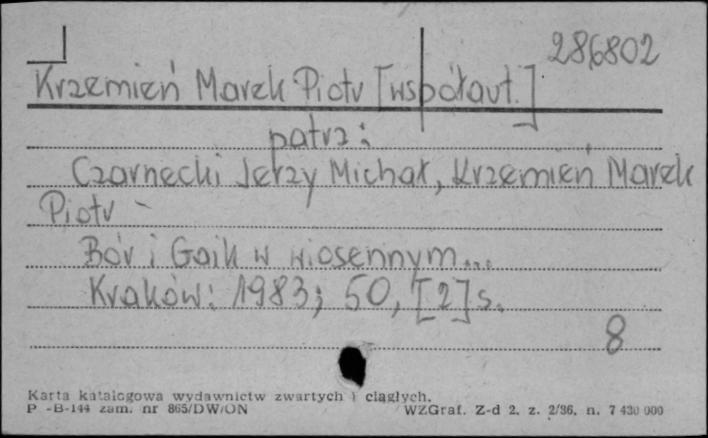 286802
Krzemień Marek Piotr [współaut.]
patrz:
Czarnecki Jerzy Michał, Krzemień Marek
Piotr -
Bór i Gaik w wiosennym...
Kraków: 1983; 50, [2] s.
8
Karta katalogowa wydawnictw zwartych i ciągłych.
P -B-144 zam. nr 865/DW/ON WZGraf. Z-d 2, z. 2/86, n. 7 430 000